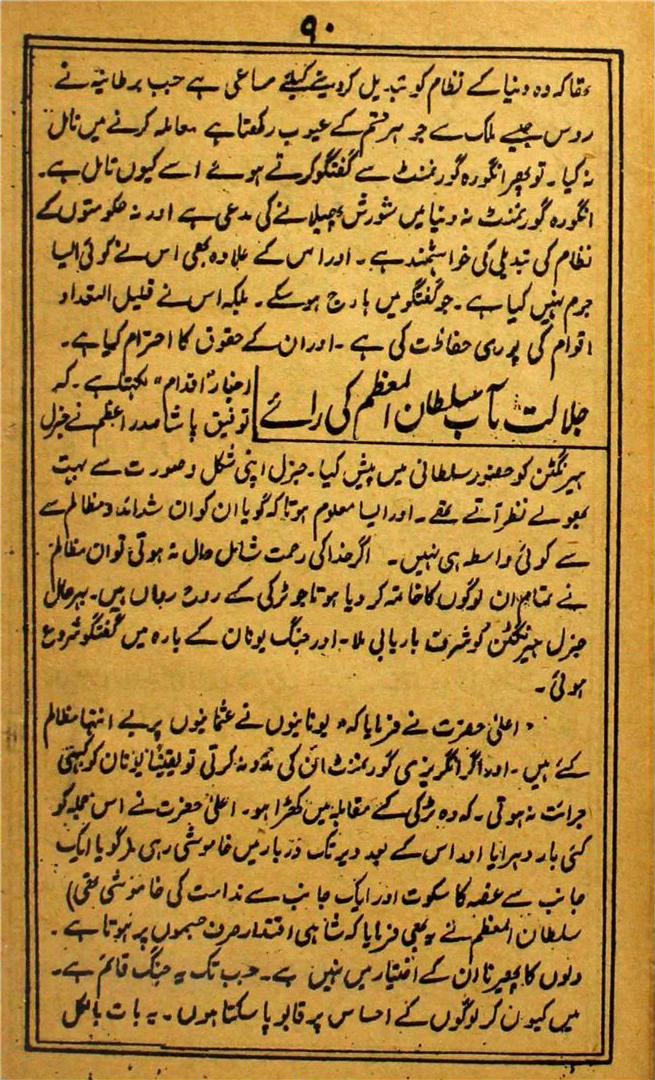 ۹۰
تقا کہ وہ دنیا کے نظام کو تبدیل کر دینے کیلئے مساعی ہے جب برطانیہ نے
روس جیسے ملک سے جو ہر قسم کے عیوب رکھتا ہے معاملہ کرنے میں تامل
نہ کیا۔ تو پھر انگورہ گورنمنٹ سے گفتگو کرتے ہوئے اسے کیوں تامل ہے۔
انگورہ گورنمنٹ نہ دنیا میں شورش پھیلانے کی مدعی ہے اور نہ حکومتوں کے
نظام کی تبدیلی کی خواہشمند ہے۔ اور اس کے علاوہ بھی اس نے کوئی ایسا
جرم نہیں کیا ہے۔ جو گفتگو میں ہارج ہو سکے۔ بلکہ اس نے قلیل التعداد
اقوام کی پوری حفاظت کی ہے۔ اور ان کے حقوق کا احترام کیا ہے۔
جلالت مآب سلطان المعظم کی رائے
اخبار "اقدام" لکھتا ہے۔ کہ
توفیق پاشا صدر اعظم نے جنرل
ہیرنگٹن کو حضور سلطانی میں پیش کیا۔ جنرل اپنی شکل و صورت سے بہت
بھولے نظر آتے تھے۔ اور ایسا معلوم ہوتا کہ گویا ان کو ان شدائد و مظالم سے
سے کوئی واسطہ ہی نہیں۔ اگر خدا کی رحمت شامل حال نہ ہوتی تو ان مظالم
نے تمام ان لوگوں کا خاتمہ کر دیا ہوتا جو ٹرکی کے روح رواں ہیں۔ بہرحال
جنرل ہیرنگٹن کو شرف باریابی ملا۔ اور جنگ یونان کے بارہ میں گفتگو شروع
ہوئی۔
"اعلیٰ حضرت نے فرمایا کہ "یونانیوں نے عثمانیوں پر بے انتہا مظالم
کئے ہیں۔ اور اگر انگریزی گورنمنٹ ان کی مدد نہ کرتی تو یقیناً یونان کو کبھی
جرات نہ ہوتی۔ کہ وہ ٹرکی کے مقابلہ میں کھڑا ہو۔ اعلیٰ حضرت نے اس جملہ کو
کئی بار دہرایا اور اس کے بعد دیر تک دربار میں خاموشی رہی (گویا ایک
جانب سے غصہ کا سکوت اور ایک جانب سے ندامت کی خاموشی تھی)
سلطان المعظم نے یہ بھی فرمایا کہ شاہی اقتدار صرف جسموں پر ہوتا ہے۔
دلوں کا پھیرنا ان کے اختیار میں نہیں ہے۔ جب تک یہ جنگ قائم ہے۔
میں کیوں کر لوگوں کے احساس پر قابو پا سکتا ہوں۔ یہ بات بالکل